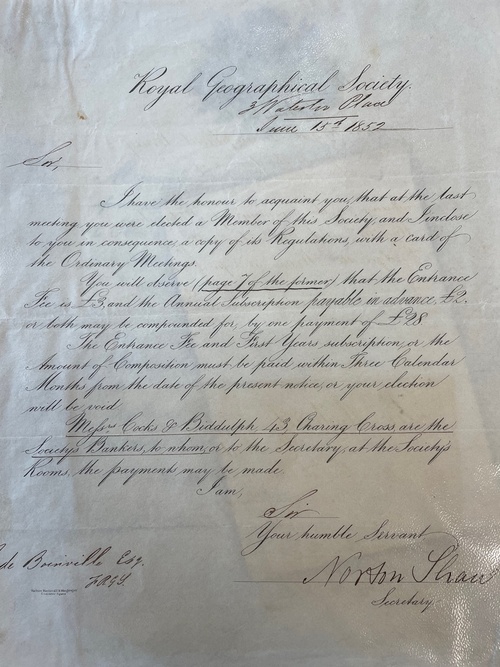 Royal Geographical Society.
3 Waterloo Place
June 15th 1852
Sir,
I have the honour to acquaint you, that at the last
meeting you were elected a Member of this Society, and I inclose
to you in consequence, a copy of its Regulations, with a card of
the Ordinary Meetings.
You will observe (page 7 of the former) that the Entrance
Fee is £3, and the Annual Subscription payable in advance, £2.
or both may be compounded for, by one payment of £28
The Entrance Fee and First Years subscription, or the
Amount of Composition must be paid within Three Calendar
Months from the date of the present notice, or your election
will be void
Messrs Cocks & Biddulph, 43, Charing Cross, are the
Society's Bankers, to whom, or to the Secretary, at the Society's
Rooms, the payments may be made.
I am,
Sir
Your humble Servant
de Boinville Esq.
Norton Shaw
Secretary.